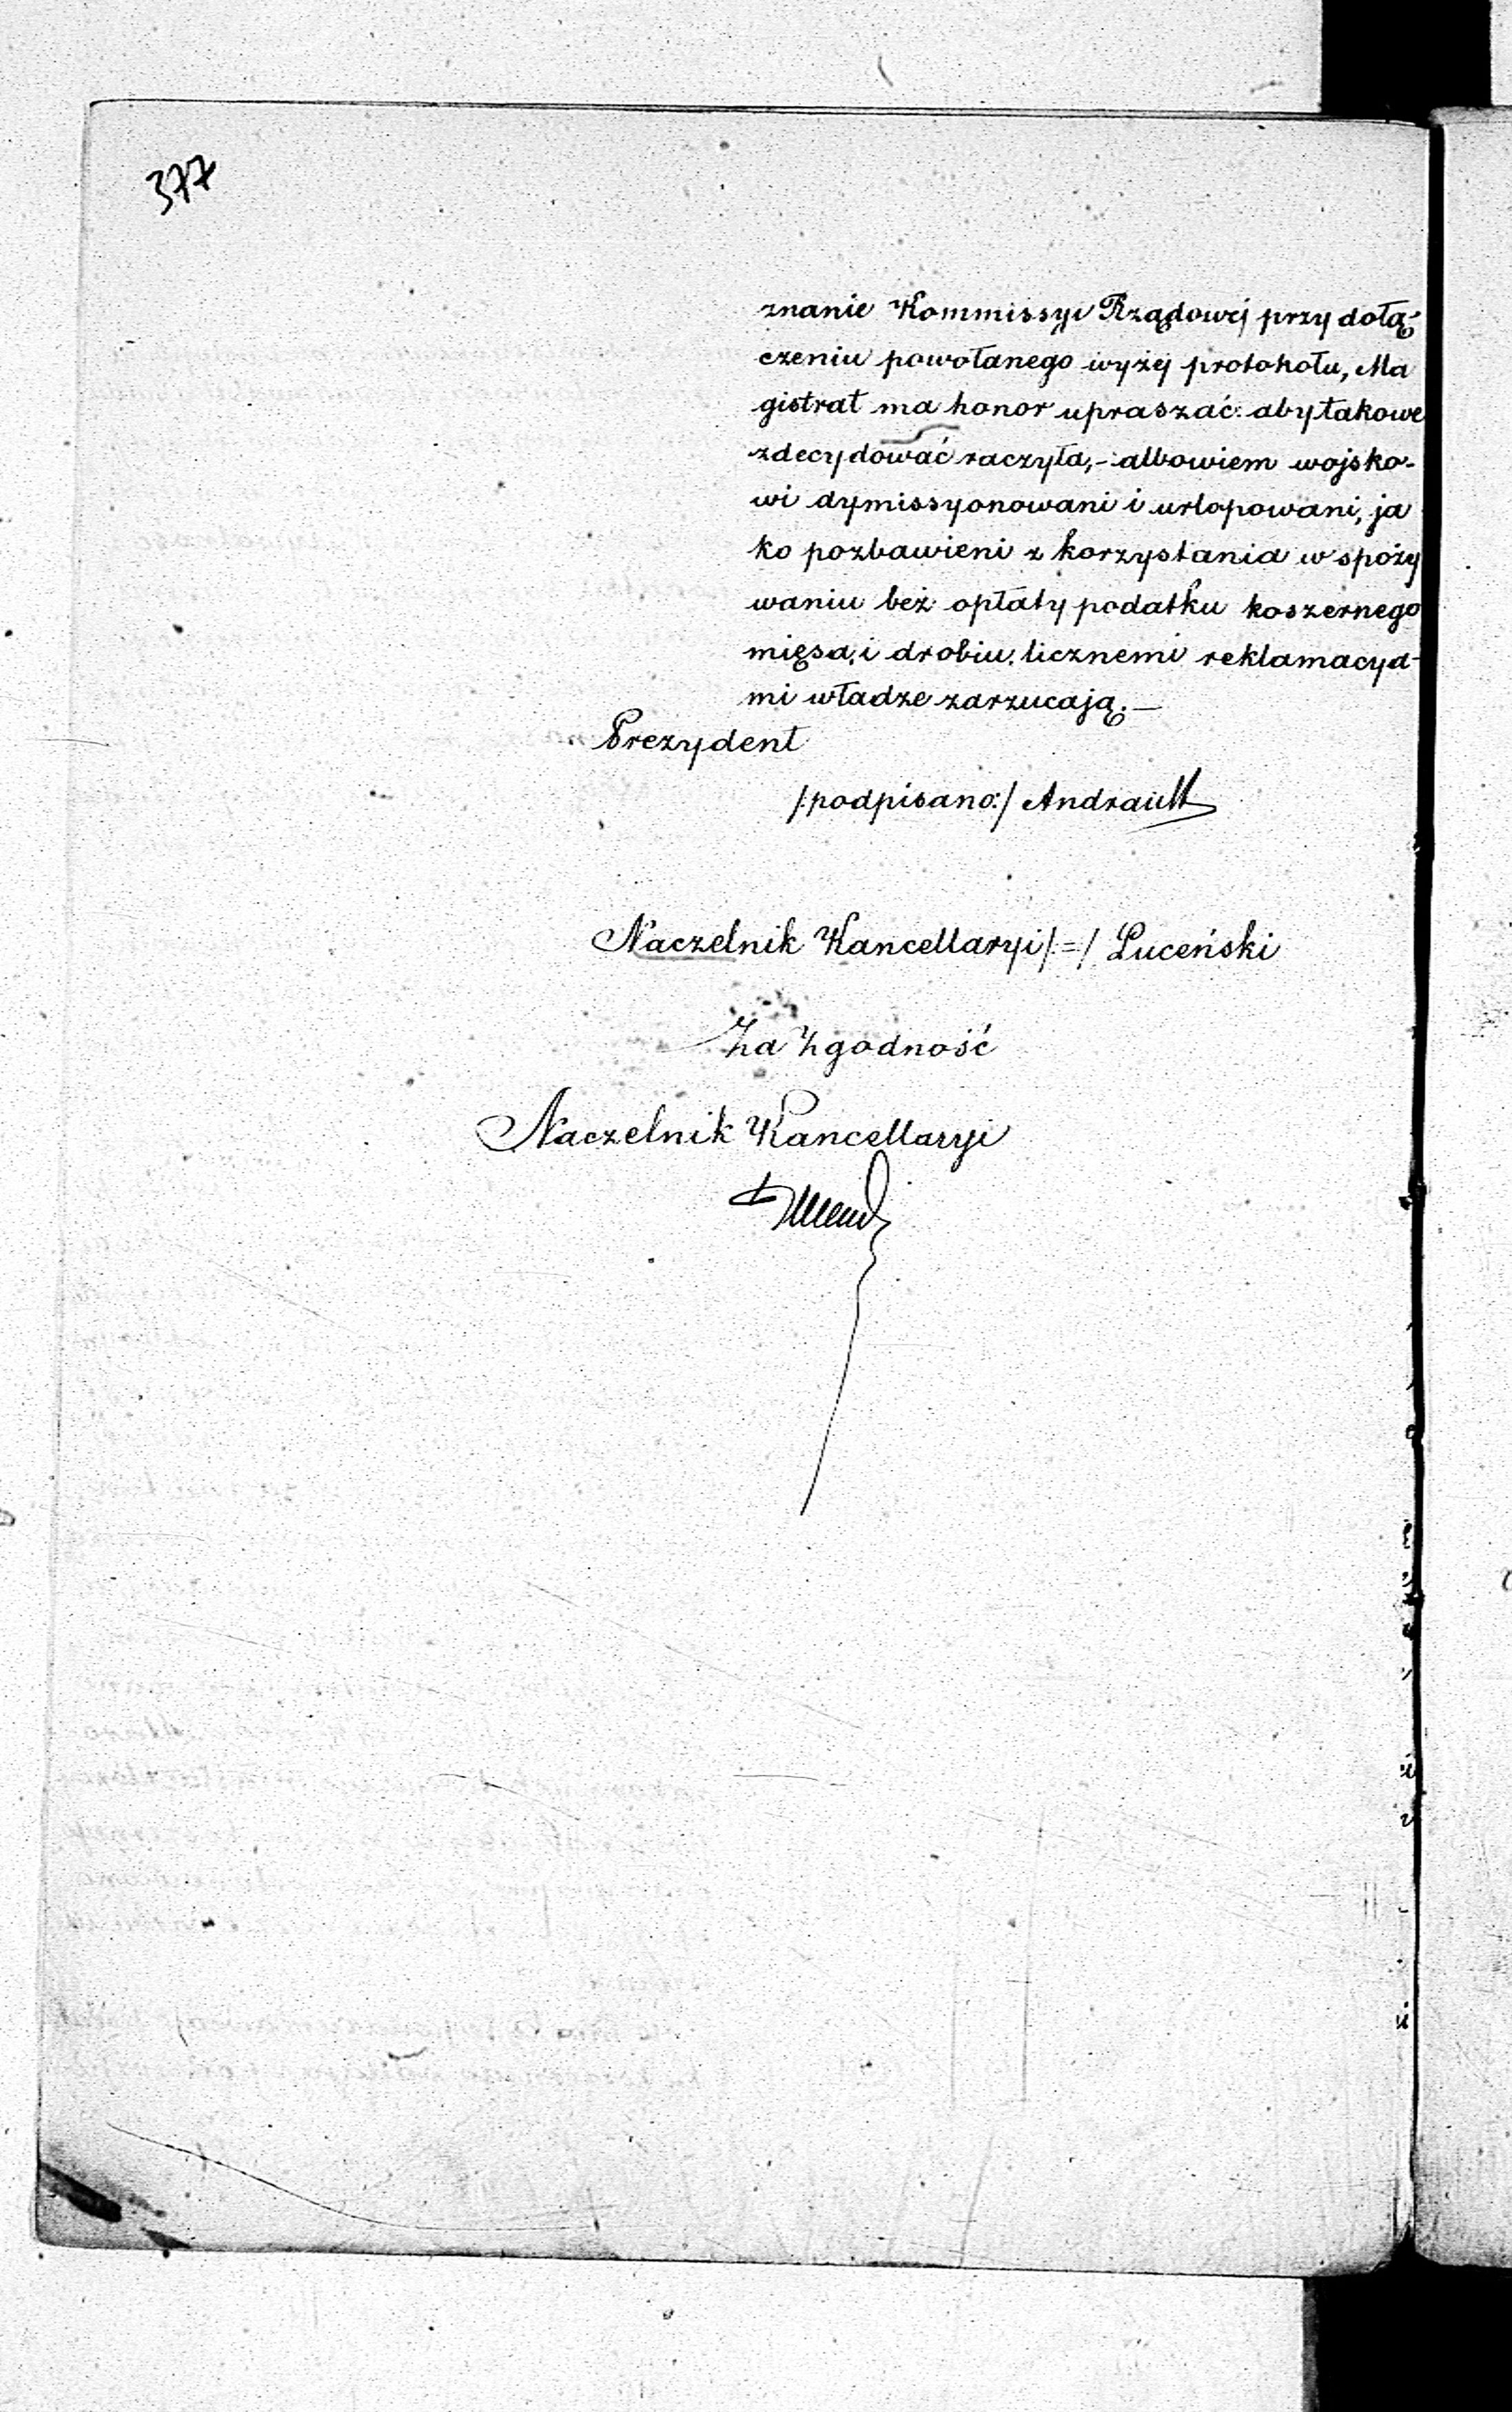 377
znanie Kommissyi Rządowej przy dołą-
czeniu powołanego wyżej protokołu, Ma
gistrat ma honor upraszać: aby takowe
zdecydować raczyła,- albowiem wojsko-
wi dymissyonowani i urlopowani, ja
ko pozbawieni z korzystania w spoży
waniu bez opłaty podatku koszernego
mięsa, i drobiu, licznemi reklamacya-
mi władze zarzucają.—
Prezydent
/:podpisano:/ Andrault
Naczelnik Kancellaryi /:=/ Luceński
Za Zgodność
Naczelnik Kancellaryi